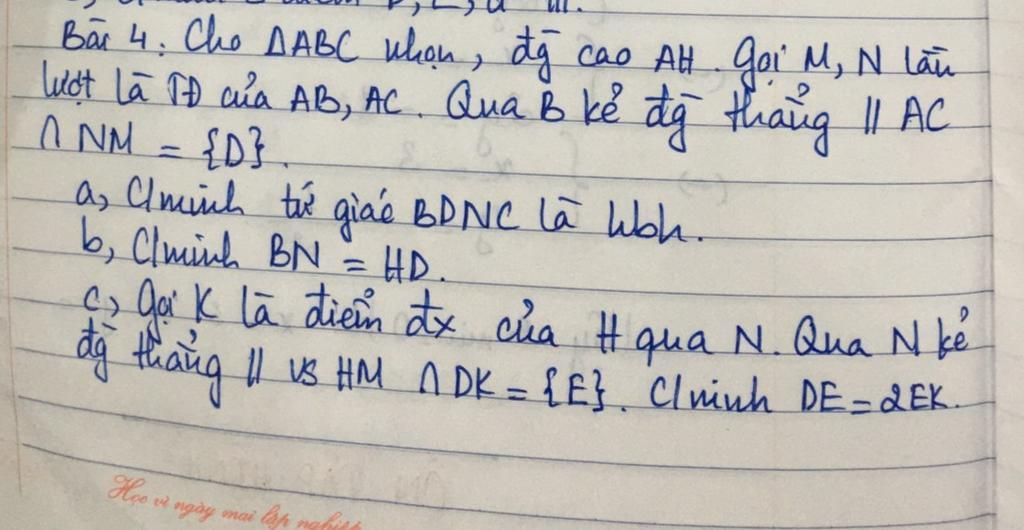 Bài 4: Cho ΔABC nhọn, đg̅ cao AH. Gọi M, N lần
lượt là TĐ của AB, AC. Qua B kẻ đg̅ thẳng // AC
∩ NM = {D}.
a, C/minh tứ giác BDNC là hbh.
b, C/minh BN = HD.
c, Gọi K là điểm đx của H qua N. Qua N kẻ
đg̅ thẳng // vs HM ∩ DK = {E}. C/minh DE = 2EK.
Học vì ngày mai lập nghiệp